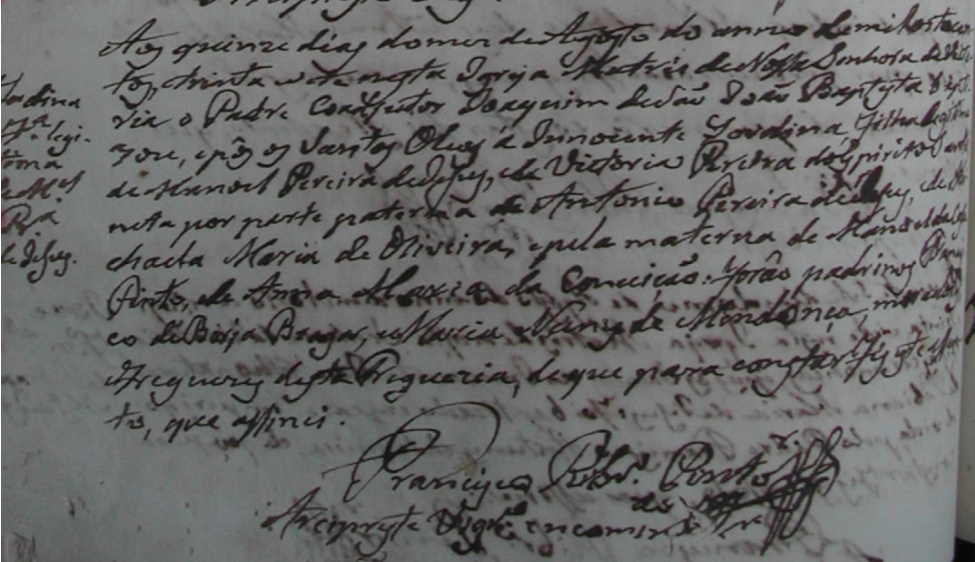 Aos quinze dias do mes de Agosto do anno de mil oitocen
tos, trinta e sete nesta Igreja Matris de Nossa Senhora da Victo
ria o Padre Coadjutor Joaquim de São João Baptista bapti
zou, e pôs os Santos Oleos á Innocente Jordina, filha legitima
de Manoel Pereira de Jesus, e de Victoria Pereira do Espirito Santo
neta por parte paterna de Antonio Pereira de Jesus, e de
chaela Maria de Oliveira, e pela materna de Manoel da
Pinto, e de Anna Maria da Conceição. Forão padrinos Fran
co de Borja Braga, e Maria Nunes de Mendonça, moradores
Freguezes desta Freguezia, de que para constar fiz este Assen
to, que assinei.
Francisco Ribr.º Pinto
Arcipreste Vigr.º encomendado
Jordina
F.ª legi-
tima
de M.el
Pr.a
de Jesus.